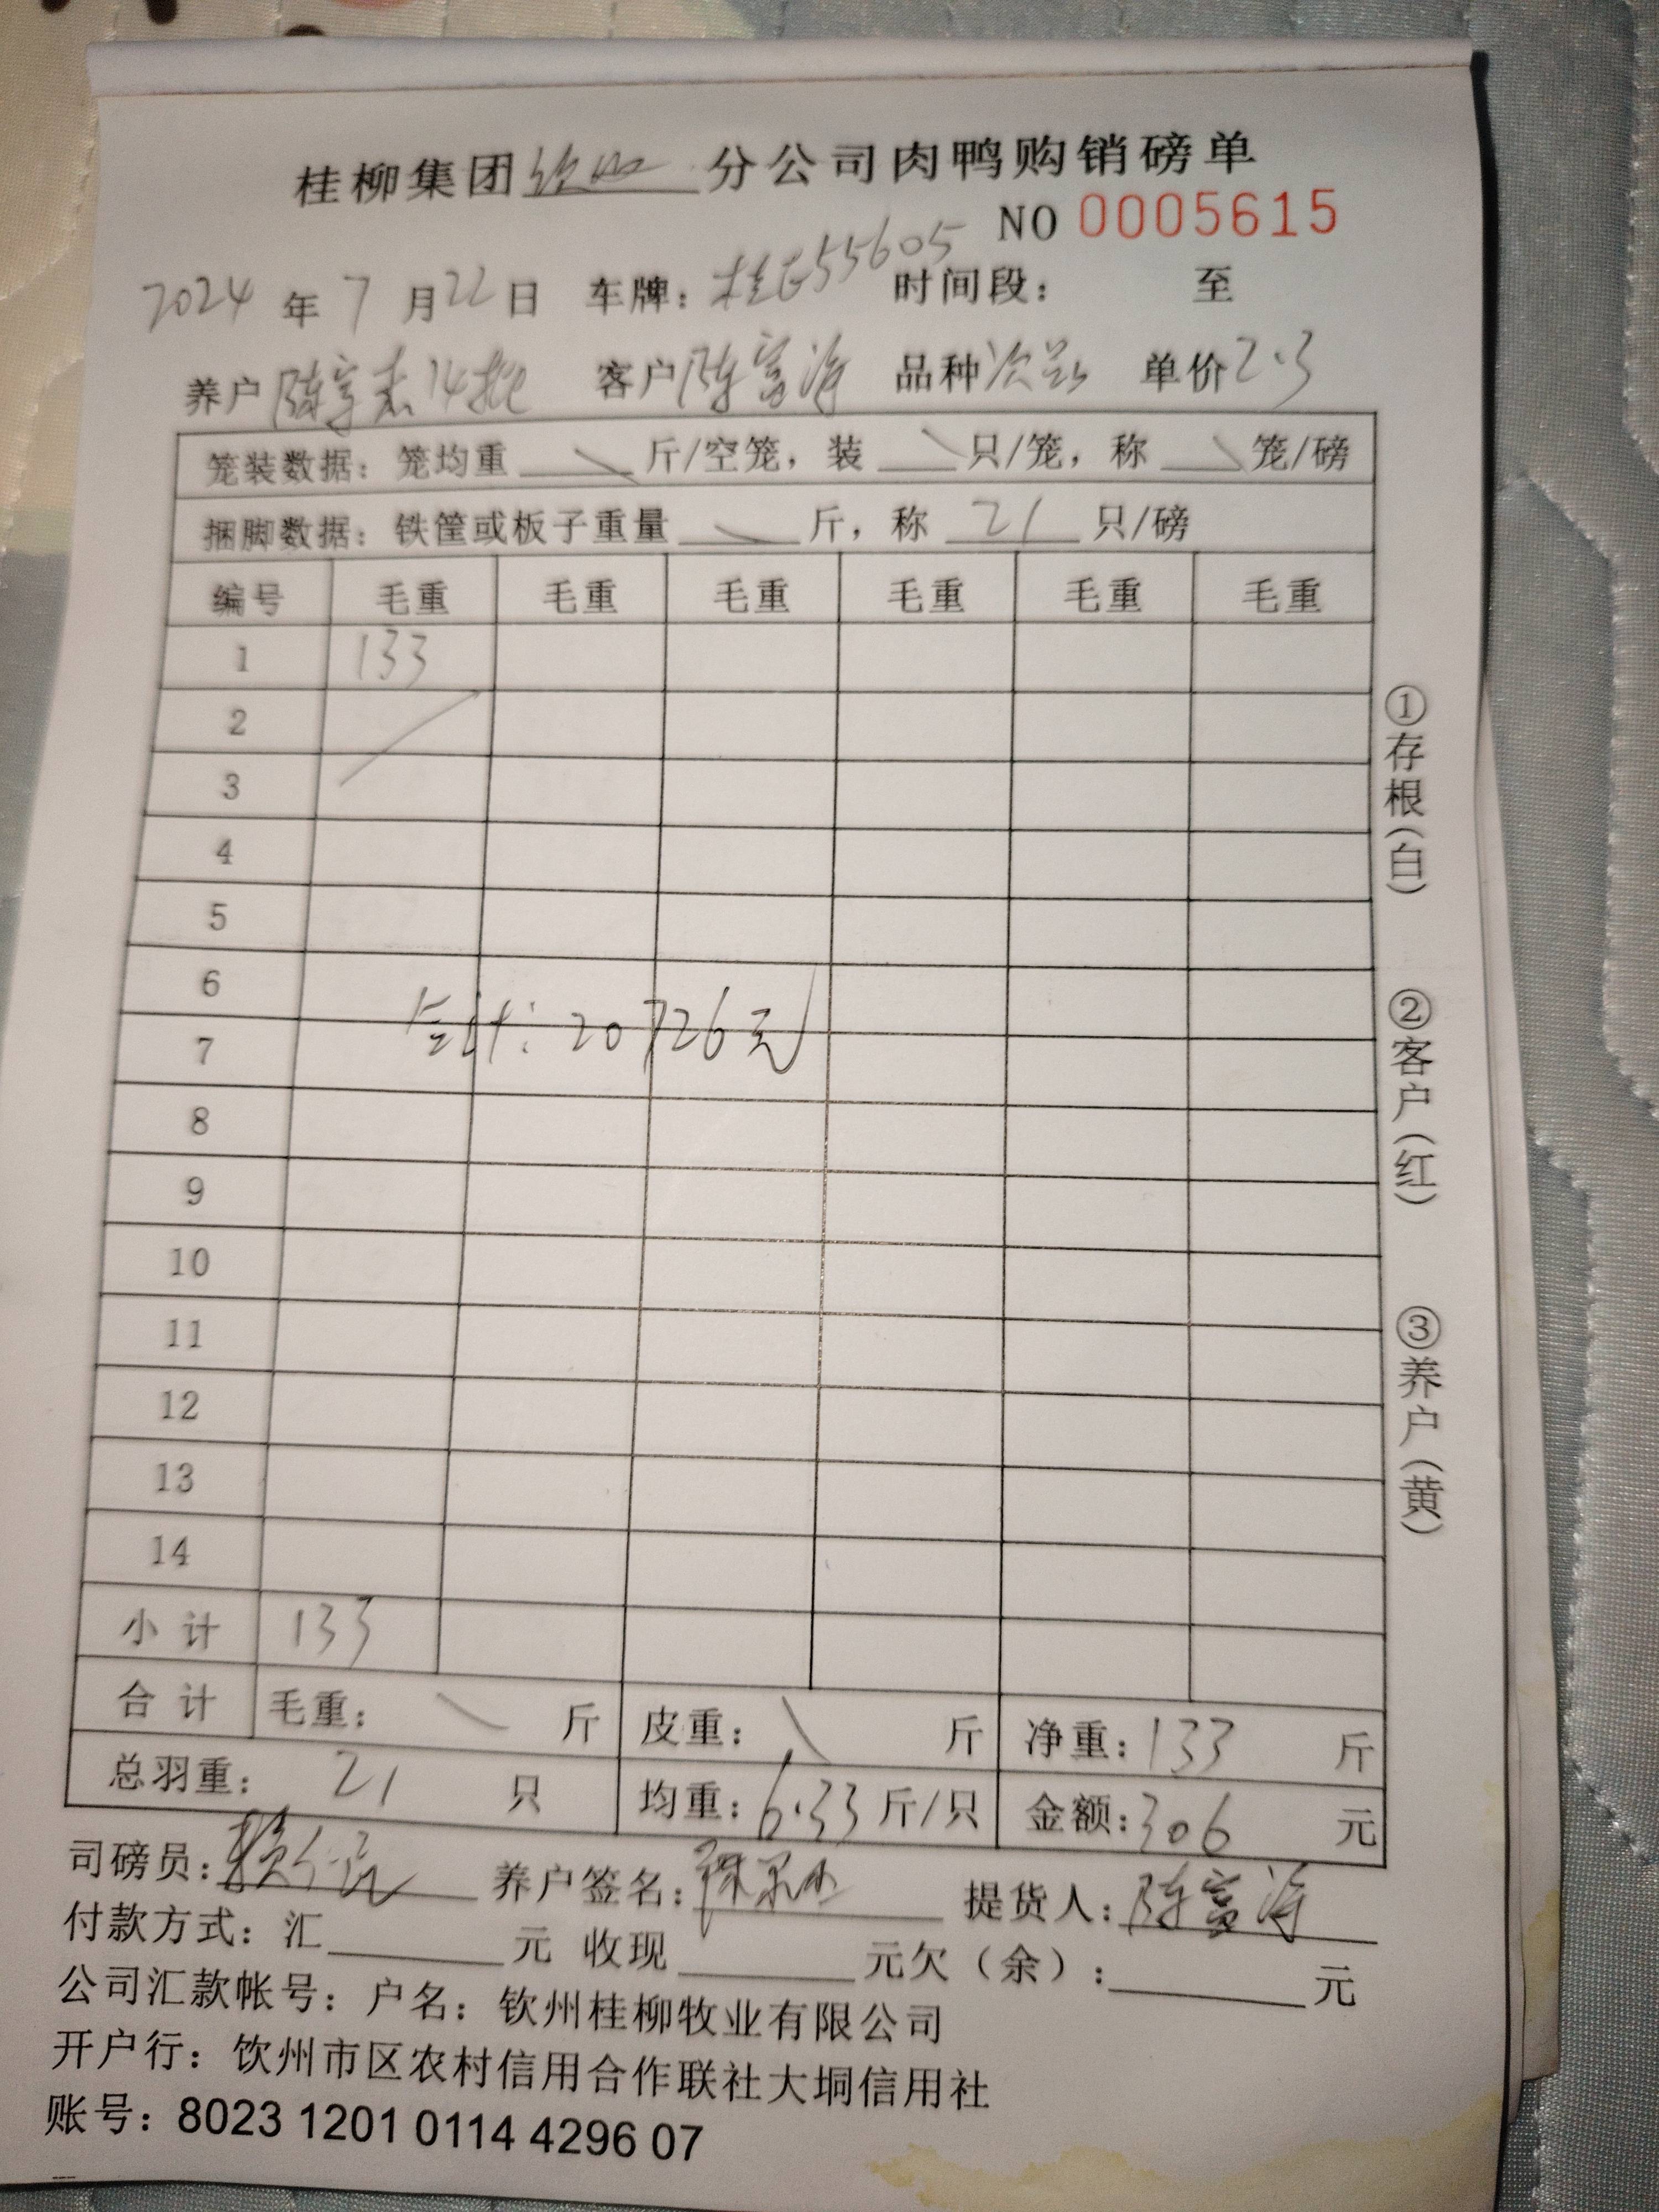 桂柳集团 分公司肉鸭购销磅单
NO 0005615
2024 年 7 月 22 日 车牌：桂E55605 时间段： 至
养户 陈 14批 客户 陈富海 品种 次 单价 2.3
笼装数据：笼均重 \ 斤/空笼，装 \ 只/笼，称 \ 笼/磅
捆脚数据：铁筐或板子重量 \ 斤，称 21 只/磅
编号 毛重 毛重 毛重 毛重 毛重 毛重
1 133
2
3
4
5
6
合计：20726元
7
8
9
10
11
12
13
14
小计 133
合计 毛重： \ 斤 皮重： \ 斤 净重：133 斤
总羽重： 21 只 均重：6.33 斤/只 金额：306 元
司磅员： 养户签名： 提货人：陈富海
付款方式：汇 元 收现 元欠（余）： 元
公司汇款帐号：户名：钦州桂柳牧业有限公司
开户行：钦州市区农村信用合作联社大垌信用社
账号：8023 1201 0114 4296 07
①存根（白）
②客户（红）
③养户（黄）